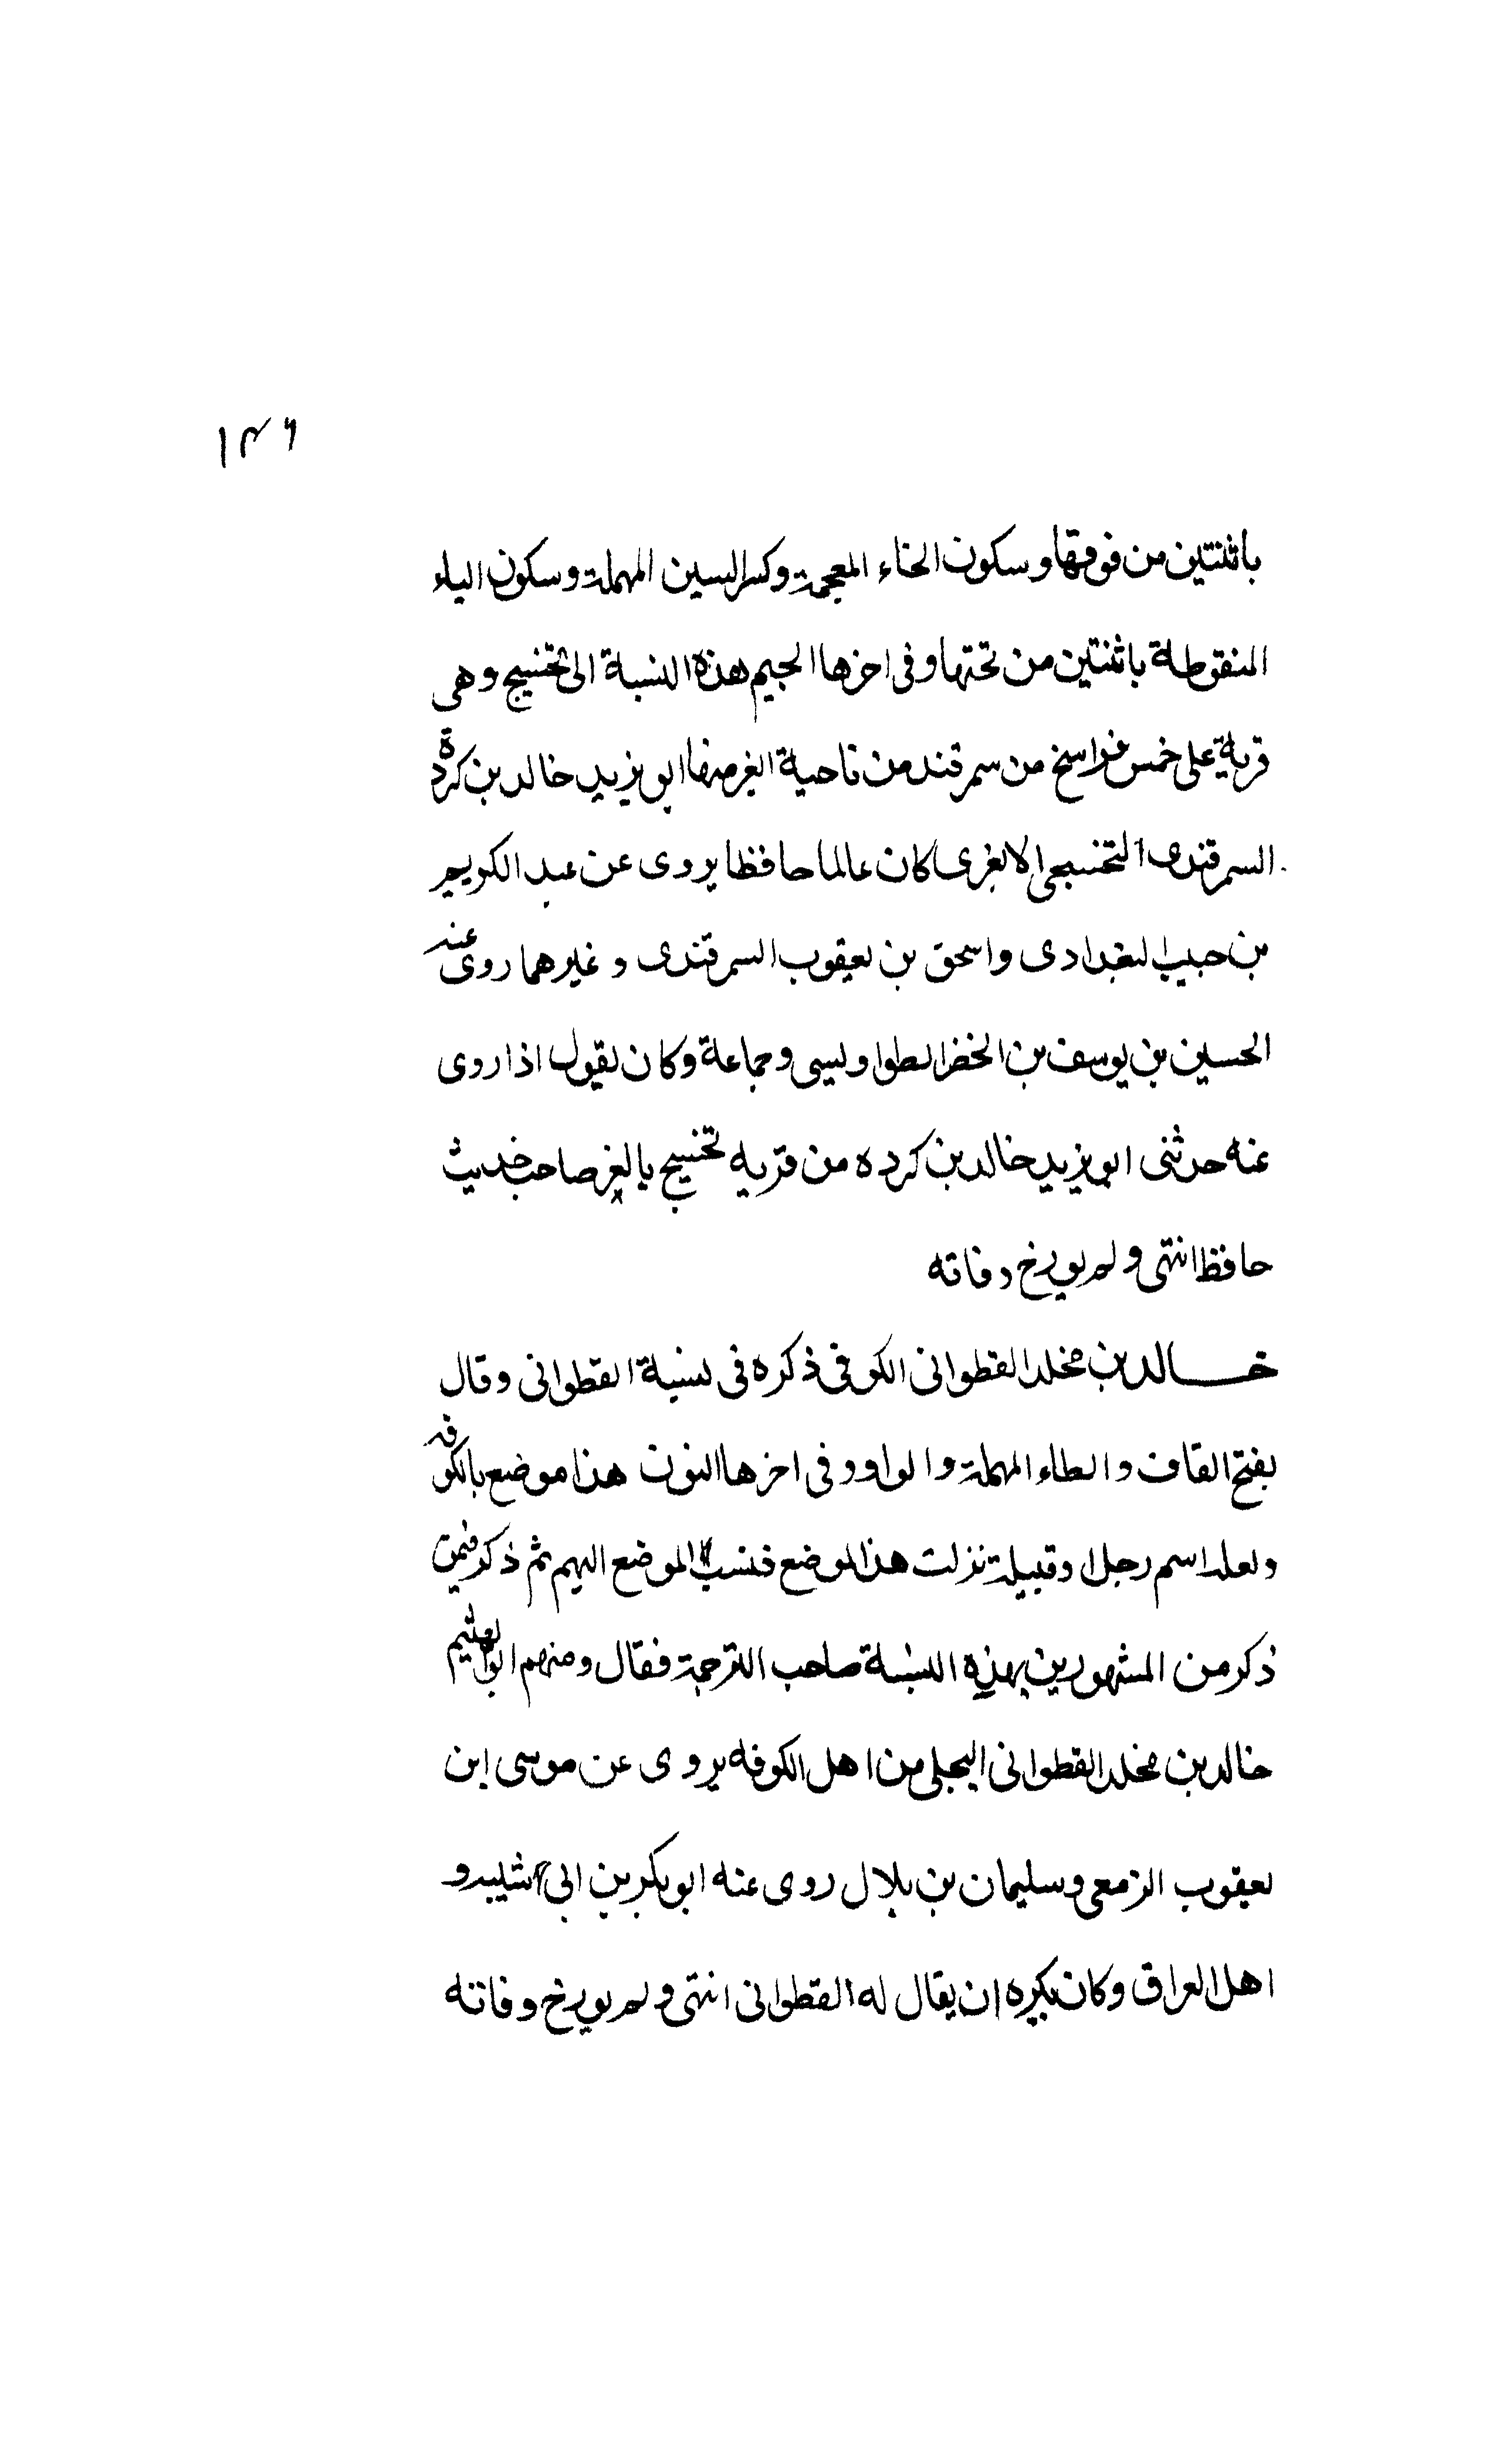 ١٣٦
باثنتين من فوقها وسكون الخاء المعجمة وكسر السين المهملة وسكون الياء
المنقوطة باثنتين من تحتها وفى اخرها الجيم هذه النسبة الى تخسيج وهى
قرية على خمس فراسخ من سمرقند من ناحية ابغر منها ابو يزيد خالد بن كردة
السمرقندى التخسيجى الابغرى كان عالما حافظا يروى عن عبد الكريم
بن حبيب البغدادى واسحق بن يعقوب السمرقندى وغيرهما روى عنه
الحسين بن يوسف بن الخضر الطواويسى وجماعة وكان يقول اذا روى
عنه حدثنى ابو يزيد خالد بن كرده من قريه تخسيج بابغر صاحب حديث
حافظ انتهى ولم يورخ وفاته
خالد بن مخلد القطوانى الكوفى ذكره فى نسبة القطوانى وقال
بفتح القاف والطاء المهملة والواو وفى اخرها النون هذا موضع بالكوفه
ولعله اسم رجل او قبيلة نزلت هذا الموضع فنسب الموضع اليهم ثم ذكر فيمن
ذكر من المشهورين بهذه النسبة صاحب الترجمة فقال ومنهم ابو الهيثم
خالد بن مخلد القطوانى البجلى من اهل الكوفه يروى عن موسى ابن
يعقوب الزمعى وسليمان بن بلال روى عنه ابو بكر بن ابى شيبه و
اهل العراق وكان يكره ان يقال له القطوانى انتهى ولم يورخ وفاته